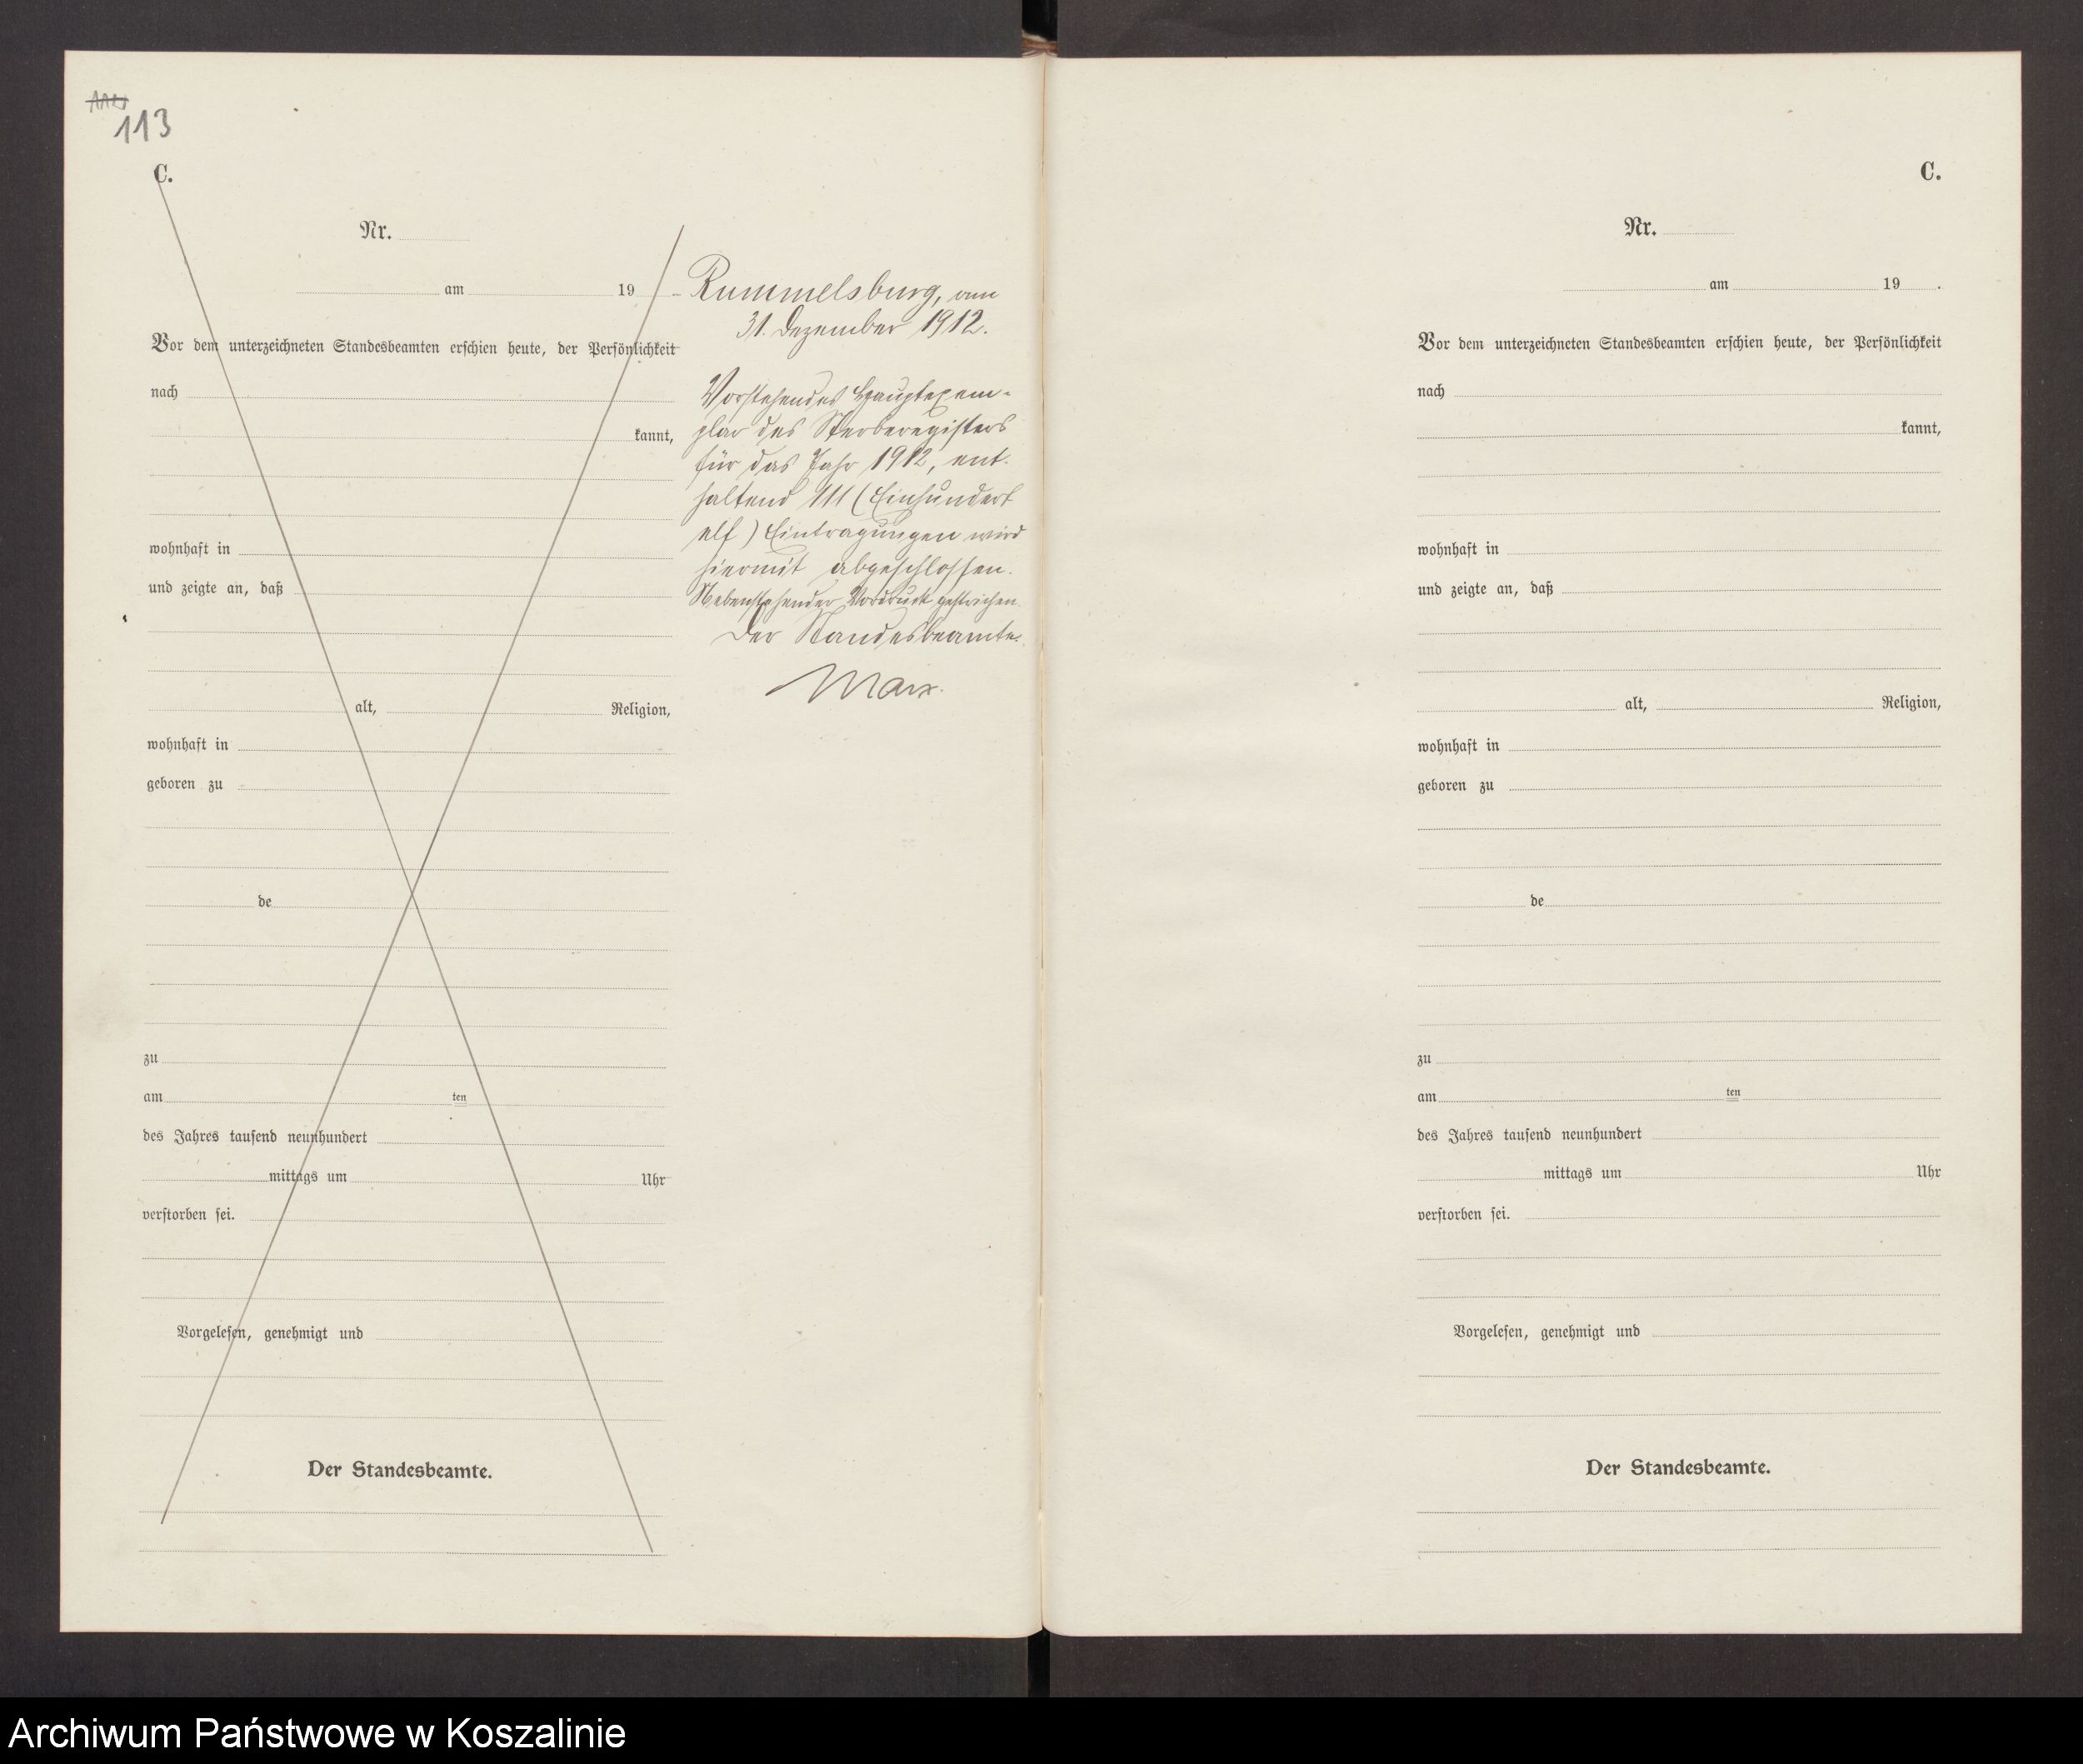 113
C.
Nr.
am 19
Vor dem unterzeichneten Standesbeamten erschien heute, der Persönlichkeit
nach
kannt,
wohnhaft in
und zeigte an, daß
alt, Religion,
wohnhaft in
geboren zu
de
zu
am ten
des Jahres tausend neunhundert
mittags um Uhr
verstorben sei.
Vorgelesen, genehmigt und
Der Standesbeamte.
Rummelsburg, am
31. Dezember 1912.
Vorstehendes Hauptexem-
plar des Sterberegisters
für das Jahr 1912, ent-
haltend 111 (Einhundert
elf) Eintragungen wird
hiermit abgeschlossen.
Nebenstehender Vordruck gestrichen.
Der Standesbeamte.
Marx.
C.
Nr.
am 19 .
Vor dem unterzeichneten Standesbeamten erschien heute, der Persönlichkeit
nach
kannt,
wohnhaft in
und zeigte an, daß
alt, Religion,
wohnhaft in
geboren zu
de
zu
am ten
des Jahres tausend neunhundert
mittags um Uhr
verstorben sei.
Vorgelesen, genehmigt und
Der Standesbeamte.
Archiwum Państwowe w Koszalinie